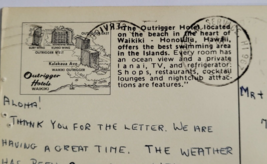 The Outrigger Hotel located
on the beach in the heart of
Waikiki - Honolulu, Hawaii,
offers the best swimming area
in the Islands. Every room has
an ocean view and a private
lanai, TV, and refrigerator.
Shops, restaurants, cocktail
lounges and nightclub attrac-
tions are features."
Kalakaua Ave.
Outrigger
Hotels
ALOHA!
Mr +
"THANK YOU FOR THE LETTER. WE ARE
HAVING A GREAT TIME. THE WEATHER
HAS BEEN